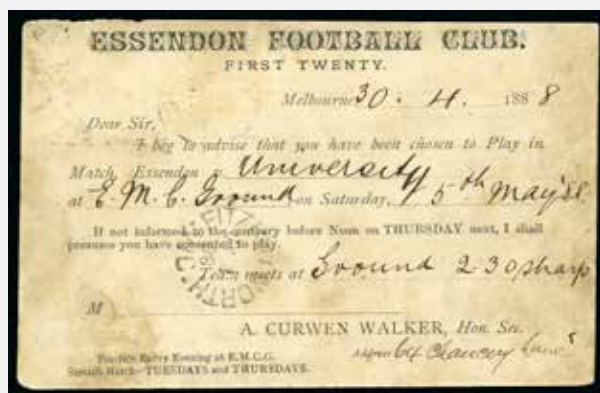 ESSENDON FOOTBALL CLUB.
FIRST TWENTY.
Melbourne 30. 4. 1888
Dear Sir,
I beg to advise that you have been chosen to Play in
Match, Essendon v University
at E. M. C. Ground on Saturday, 5th May '88
If not informed to the contrary before Noon on THURSDAY next, I shall
presume you have consented to play.
Team meets at Ground 2 30 sharp
M
A. CURWEN WALKER, Hon. Sec.
Address 64 Chancery Lane
Practice Every Evening at E.M.C.G.
Scratch Match—TUESDAYS and THURSDAYS.
FITZROY NORTH